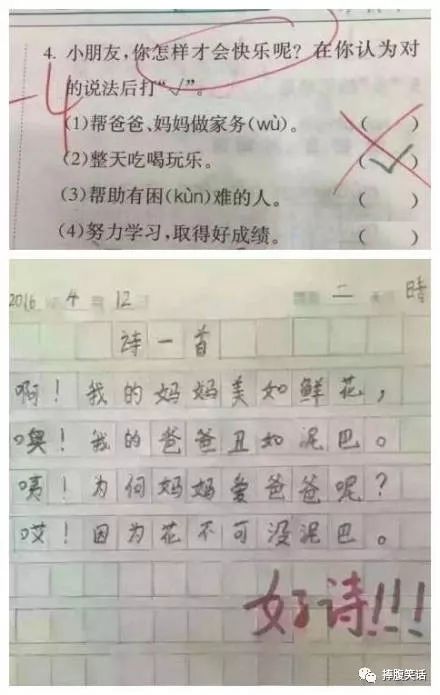 -4
4. 小朋友,你怎样才会快乐呢? 在你认为对
的说法后打“√”。
(1)帮爸爸、妈妈做家务(wù)。 ( )
(2)整天吃喝玩乐。 (√)
(3)帮助有困(kùn)难的人。 ( )
(4)努力学习,取得好成绩。 ( )
2016 4 12 二 晴
诗一首
啊!我的妈妈美如鲜花,
噢!我的爸爸丑如泥巴。
咦!为何妈妈爱爸爸呢?
哎!因为花不可没泥巴。
好诗!!!
捧腹笑话